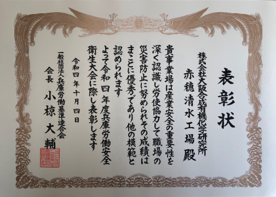 表彰状
株式会社大阪合成有機化学研究所
赤穂清水工場 殿
貴事業場は産業安全の重要性を
深く認識し労使協力して職場の
災害防止に努められその成績は
まことに優秀であり他の模範と
認められます
よって令和四年度兵庫労働安全
衛生大会に際し表彰します
令和四年十月四日
一般社団法人兵庫労働基準連合会
会長 小椋大輔